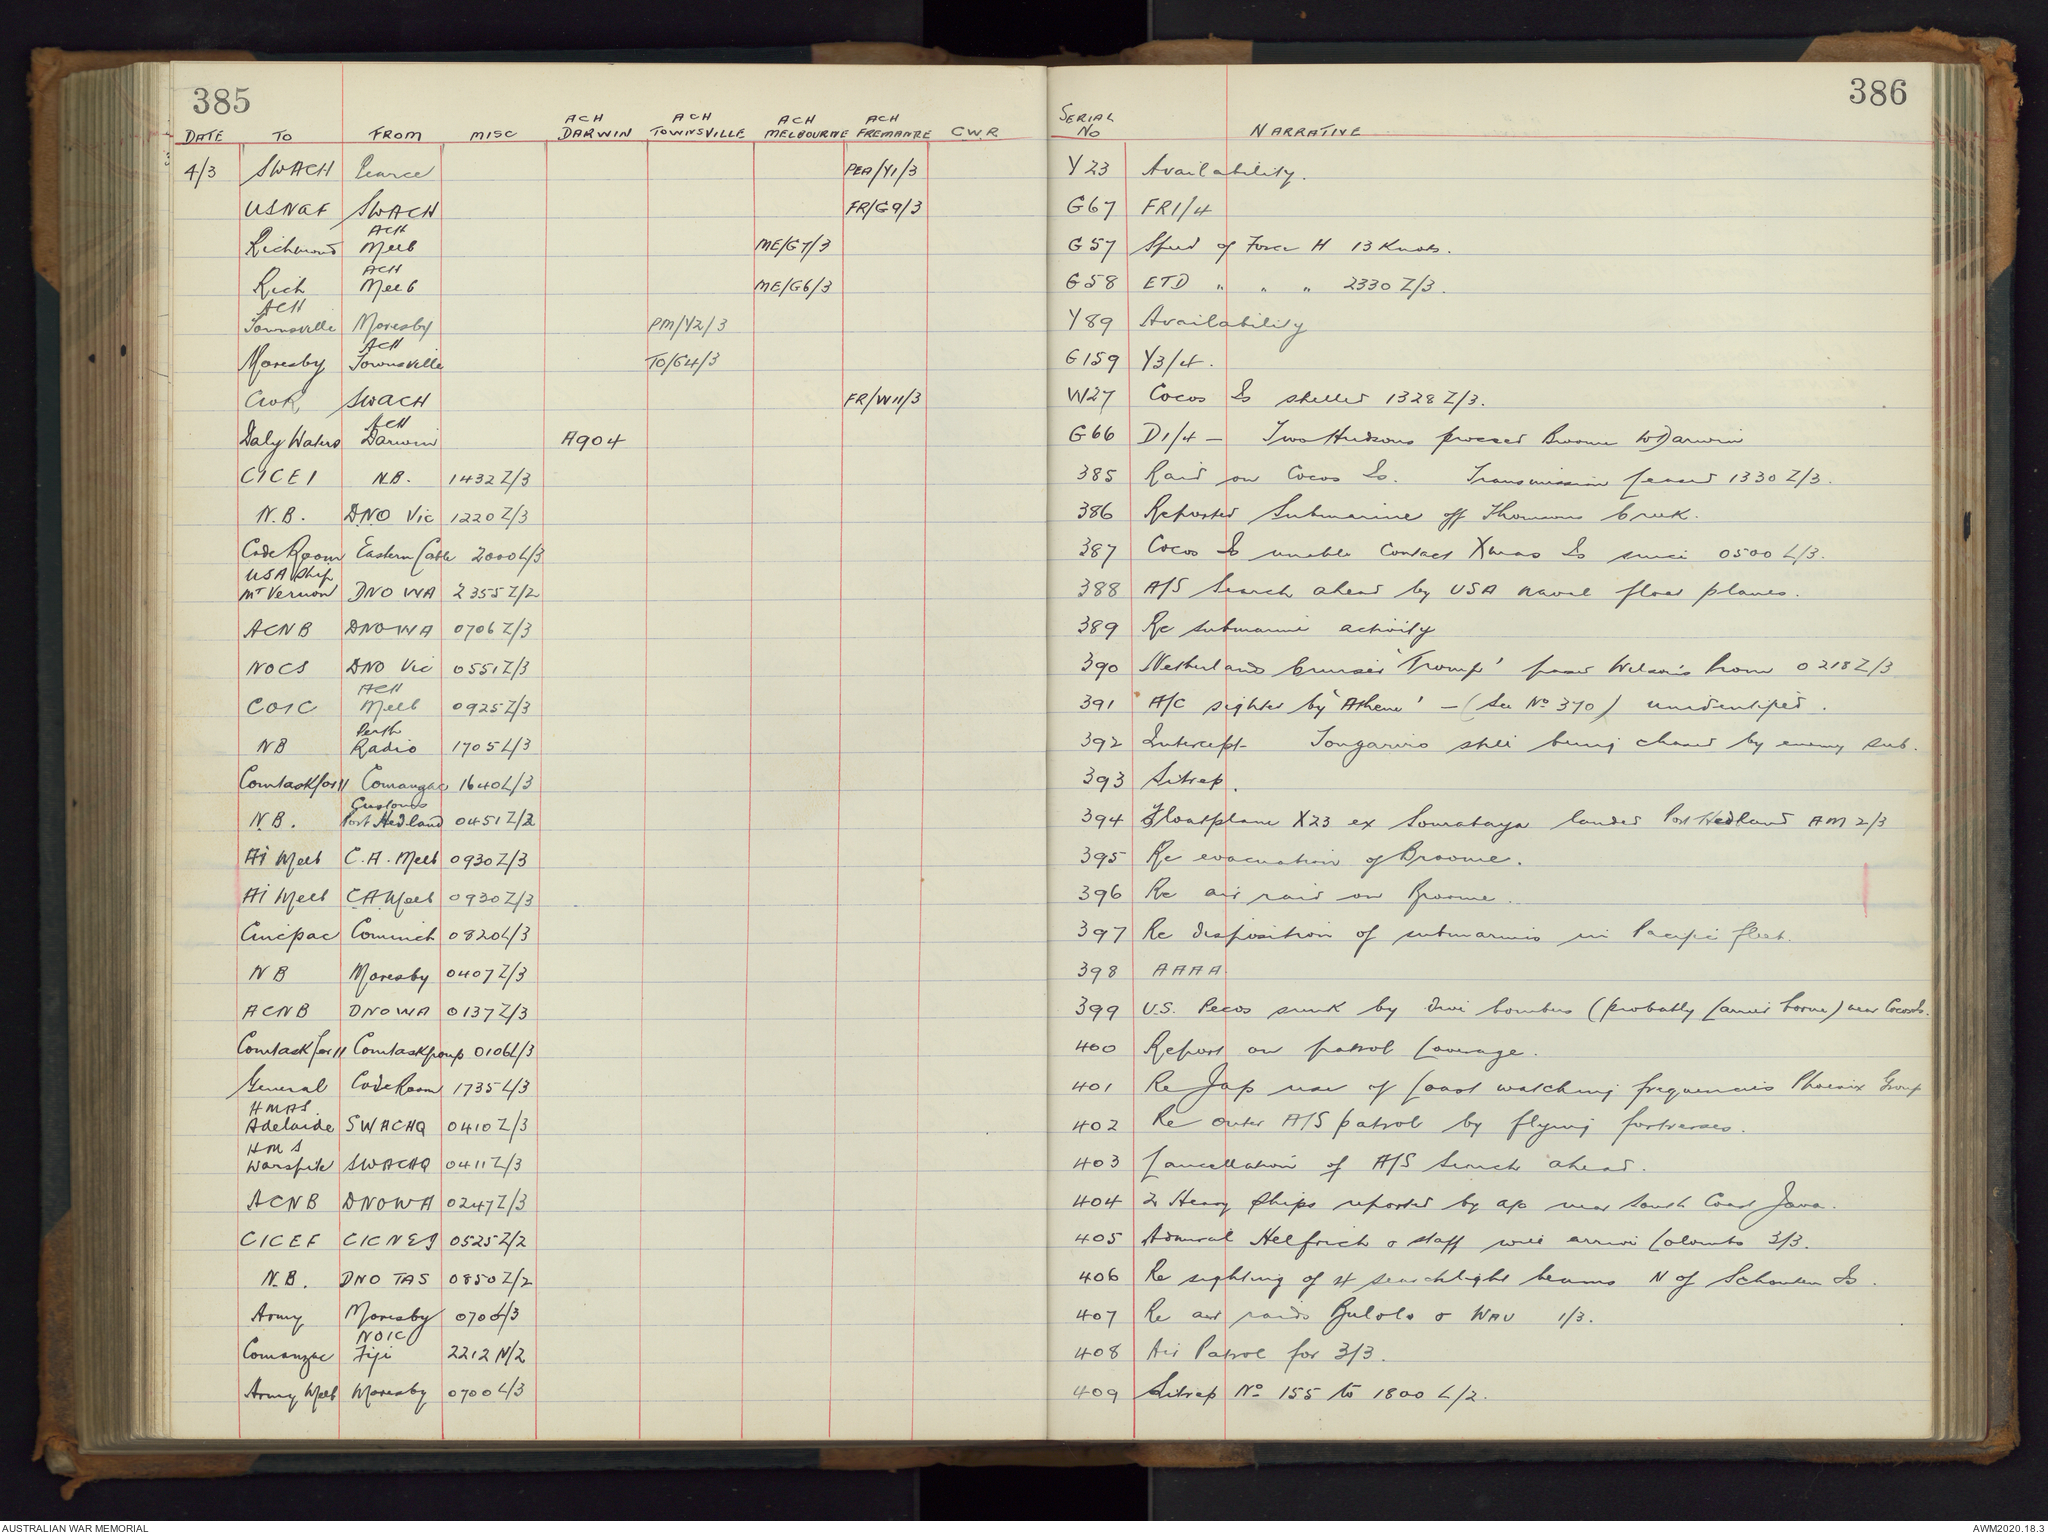 385
386
DATE TO FROM MISC ACH DARWIN ACH TOWNSVILLE ACH MELBOURNE ACH FREMANTLE CWR SERIAL No NARRATIVE
4/3 SWACH Pearce PEA/Y1/3 Y23 Availability.
USNAF SWACH FR/G9/3 G67 FR1/4
Richmond ACH Melb ME/G7/3 G57 Speed of Force H 13 Knots.
Rich ACH Melb ME/G6/3 G58 ETD " " " 2330 Z/3.
ACH Townsville Moresby PM/Y2/3 Y89 Availability
Moresby ACH Townsville TO/G4/3 G159 Y3/4.
CWR SWACH FR/W11/3 W27 Cocos Is shelled 1328 Z/3.
Daly Waters ACH Darwin A904 G66 D1/4 - Two Hudsons proceed Broome to Darwin
CICEI N.B. 1432 Z/3 385 Raid on Cocos Is. Transmission ceased 1330 Z/3.
N.B. DNO Vic 1220 Z/3 386 Reported Submarine off Thomsons Creek.
Code Room Eastern Cable 2000 L/3 387 Cocos Is unable Contact Xmas Is since 0500 L/3.
USA Ship Mt Vernon DNO WA 2355 Z/2 388 A/S Search ahead by USA naval float planes.
ACNB DNOWA 0706 Z/3 389 Re submarine activity
NOCS DNO Vic 0551 Z/3 390 Netherlands Cruiser 'Tromp' passed Wilson's Prom 0218 Z/3
COIC ACH Melb 0925 Z/3 391 A/C sighted by 'Athene' - (See No 370) unidentified.
NB Perth Radio 1705 L/3 392 Intercept Tongariro still being chased by enemy sub.
Comtaskfor 11 Comanzac 1640 L/3 393 Sitrep.
N.B. Customs Port Hedland 0451 Z/2 394 Floatplane X23 ex Sourabaya landed Port Hedland AM 2/3
Ai Melb C.A. Melb 0930 Z/3 395 Re evacuation of Broome.
Ai Melb C.A. Melb 0930 Z/3 396 Re air raid on Broome.
Cincpac Cominch 0820 L/3 397 Re disposition of submarines in Pacific fleet.
NB Moresby 0407 Z/3 398 AAAA
ACNB DNOWA 0137 Z/3 399 U.S. Pecos sunk by dive bombers (probably Carrier borne) near Cocos Is.
Comtaskfor 11 Comtaskgroup 0106 L/3 400 Report on patrol Coverage.
General Code Room 1735 L/3 401 Re Jap use of Coast watching frequencies Phoenix Group
HMAS Adelaide SWACHQ 0410 Z/3 402 Re outer A/S patrol by flying fortresses.
HMS Warspite SWACHQ 0411 Z/3 403 Cancellation of A/S Search ahead.
ACNB DNOWA 0247 Z/3 404 2 Heavy Ships reported by a/c near South Coast Java.
CICEF CICNEI 0525 Z/2 405 Admiral Helfrich & staff will arrive Colombo 3/3.
N.B. DNO TAS 0850 Z/2 406 Re sighting of 4 searchlight beams N of Schouten Is.
Army Moresby 0700 L/3 407 Re air raids Bulolo & WAU 1/3.
Comanzac NOIC Fiji 2212 N/2 408 Air Patrol for 3/3.
Army Melb Moresby 0700 L/3 409 Sitrep No 155 to 1800 L/2.
AUSTRALIAN WAR MEMORIAL
AWM2020.18.3